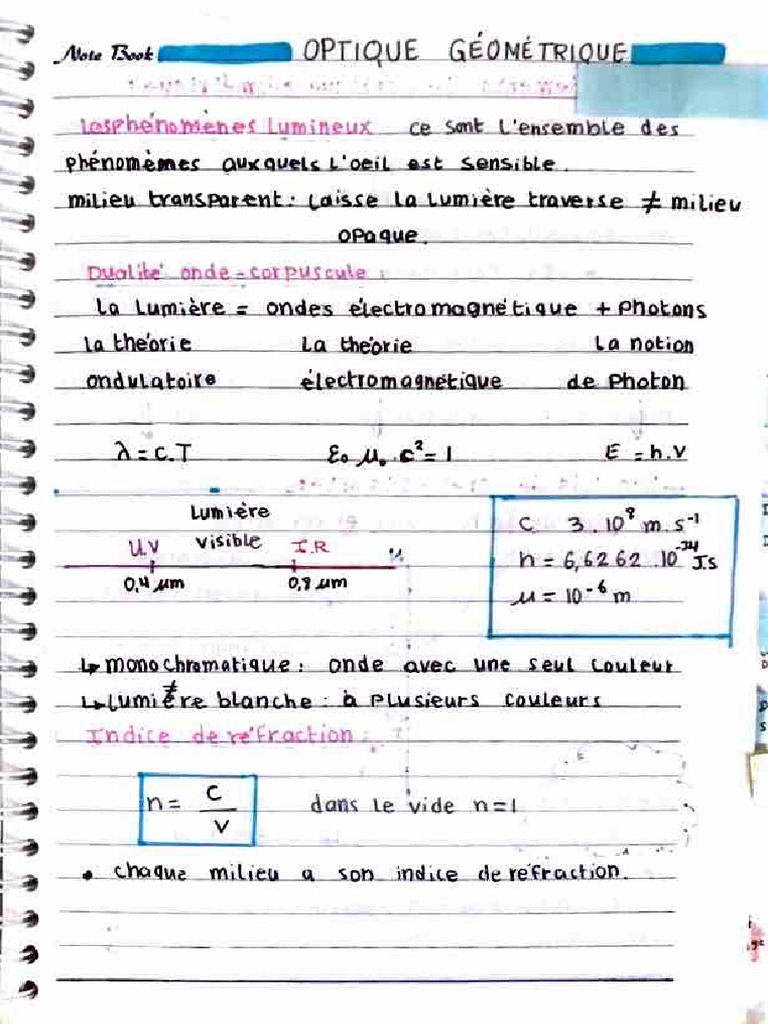 Note Book OPTIQUE GÉOMÉTRIQUE
Les phénomènes Lumineux ce sont l'ensemble des
phénomèmes auxquels l'oeil est sensible.
milieu transparent : Laisse la lumière traverse ≠ milieu
opaque.
Dualité onde-corpuscule
la lumière = ondes électromagnétique + Photons
la théorie La théorie la notion
ondulatoire électromagnétique de Photon
λ = c.T ε₀ μ₀ c² = 1 E = h.ν
Lumière
U.V visible I.R
0,4 μm 0,8 μm
C 3.10⁸ m.s⁻¹
h = 6,6262.10⁻³⁴ J.s
μ = 10⁻⁶ m
↳ monochromatique : onde avec une seul couleur
≠
↳ lumière blanche : à plusieurs couleurs
Indice de réfraction :
n = C / V dans le vide n=1
• chaque milieu a son indice de réfraction.